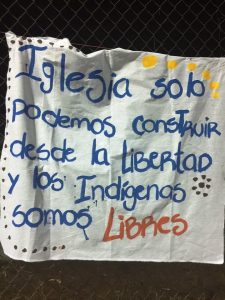 Iglesia solo
Podemos construir
desde la Libertad
y los Indígenas
somos Libres